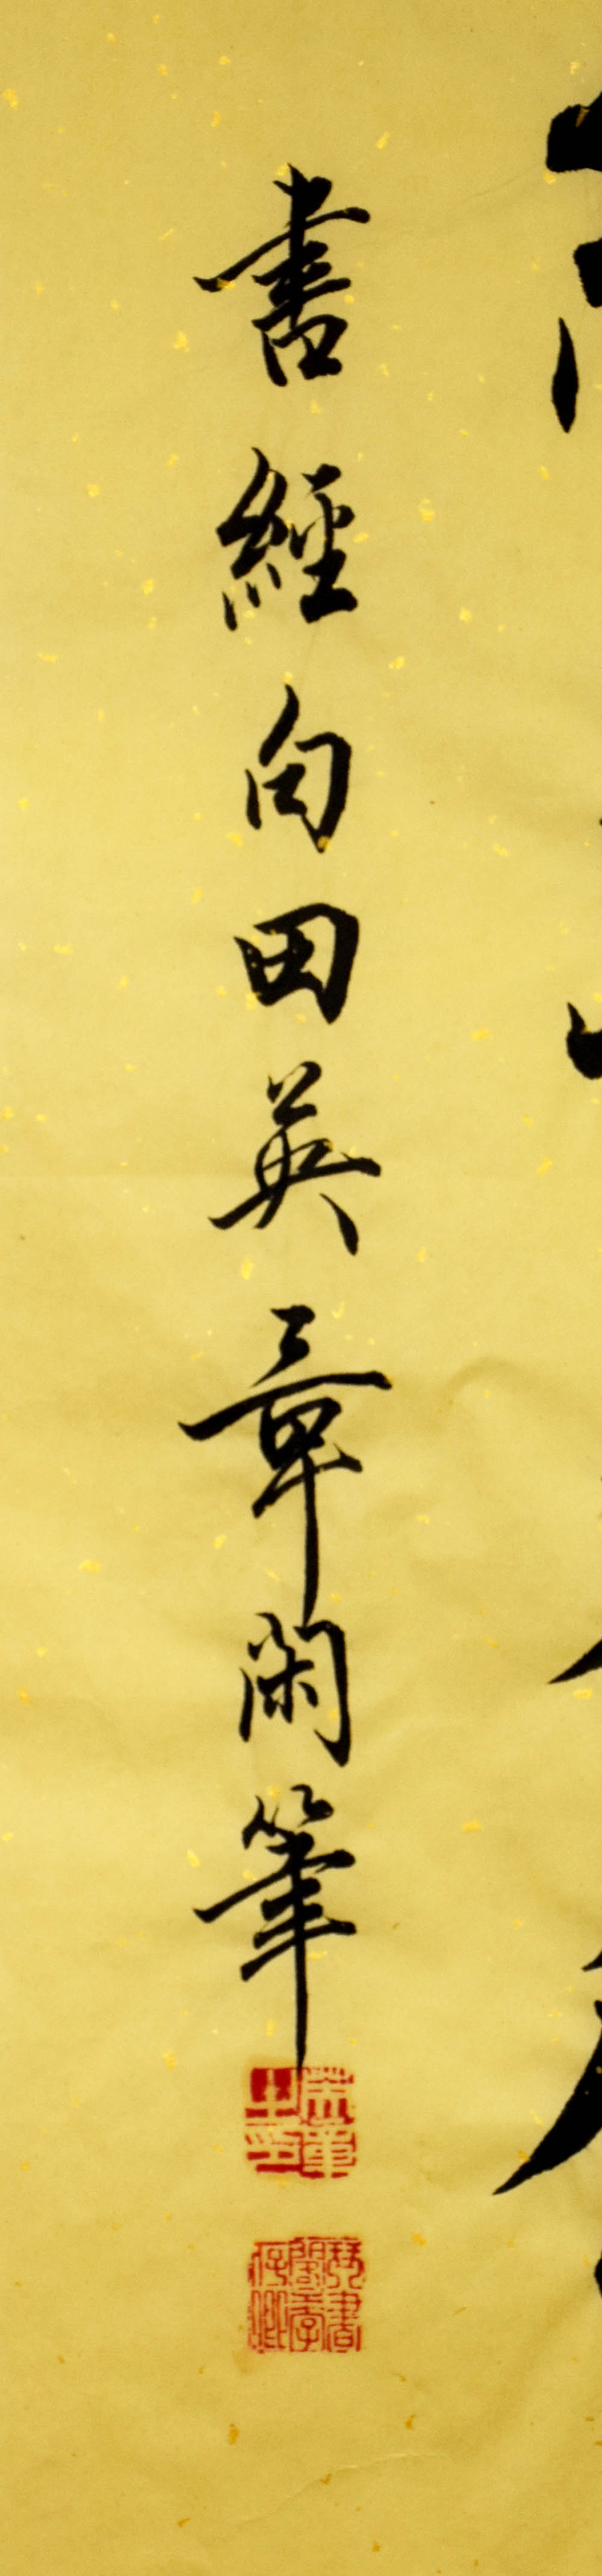 書經句田英章閑筆